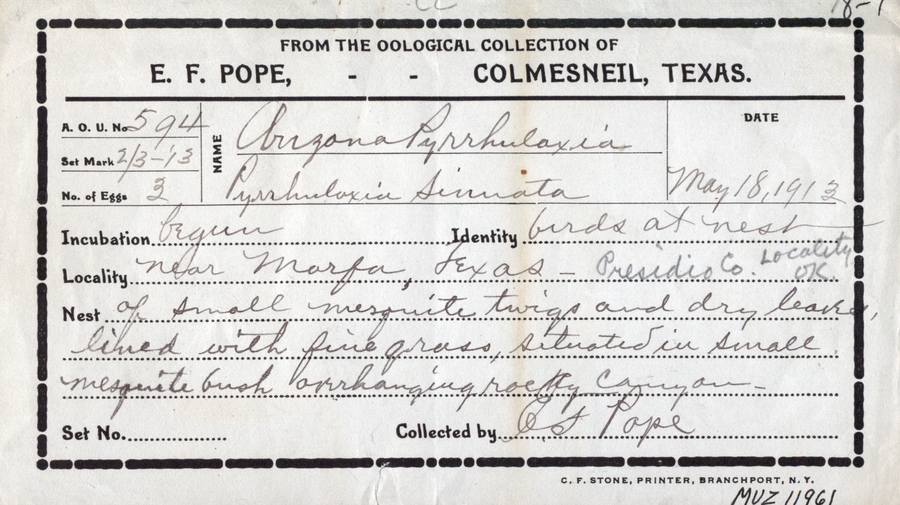 18-1
FROM THE OOLOGICAL COLLECTION OF
E. F. POPE, - - COLMESNEIL, TEXAS.
A. O. U. No 594 NAME Arizona Pyrrhuloxia DATE
Set Mark 2/3-'13
No. of Eggs 3 Pyrrhuloxia Sinuata May 18, 1913
Incubation begun Identity birds at nest
Locality near Marfa, Texas - Presidio Co. Locality OK.
Nest of small mesquite twigs and dry leaves,
lined with fine grass, situated in small
mesquite bush overhanging rocky canyon -
Set No. Collected by E F Pope
C. F. STONE, PRINTER, BRANCHPORT, N. Y.
MVZ 11961